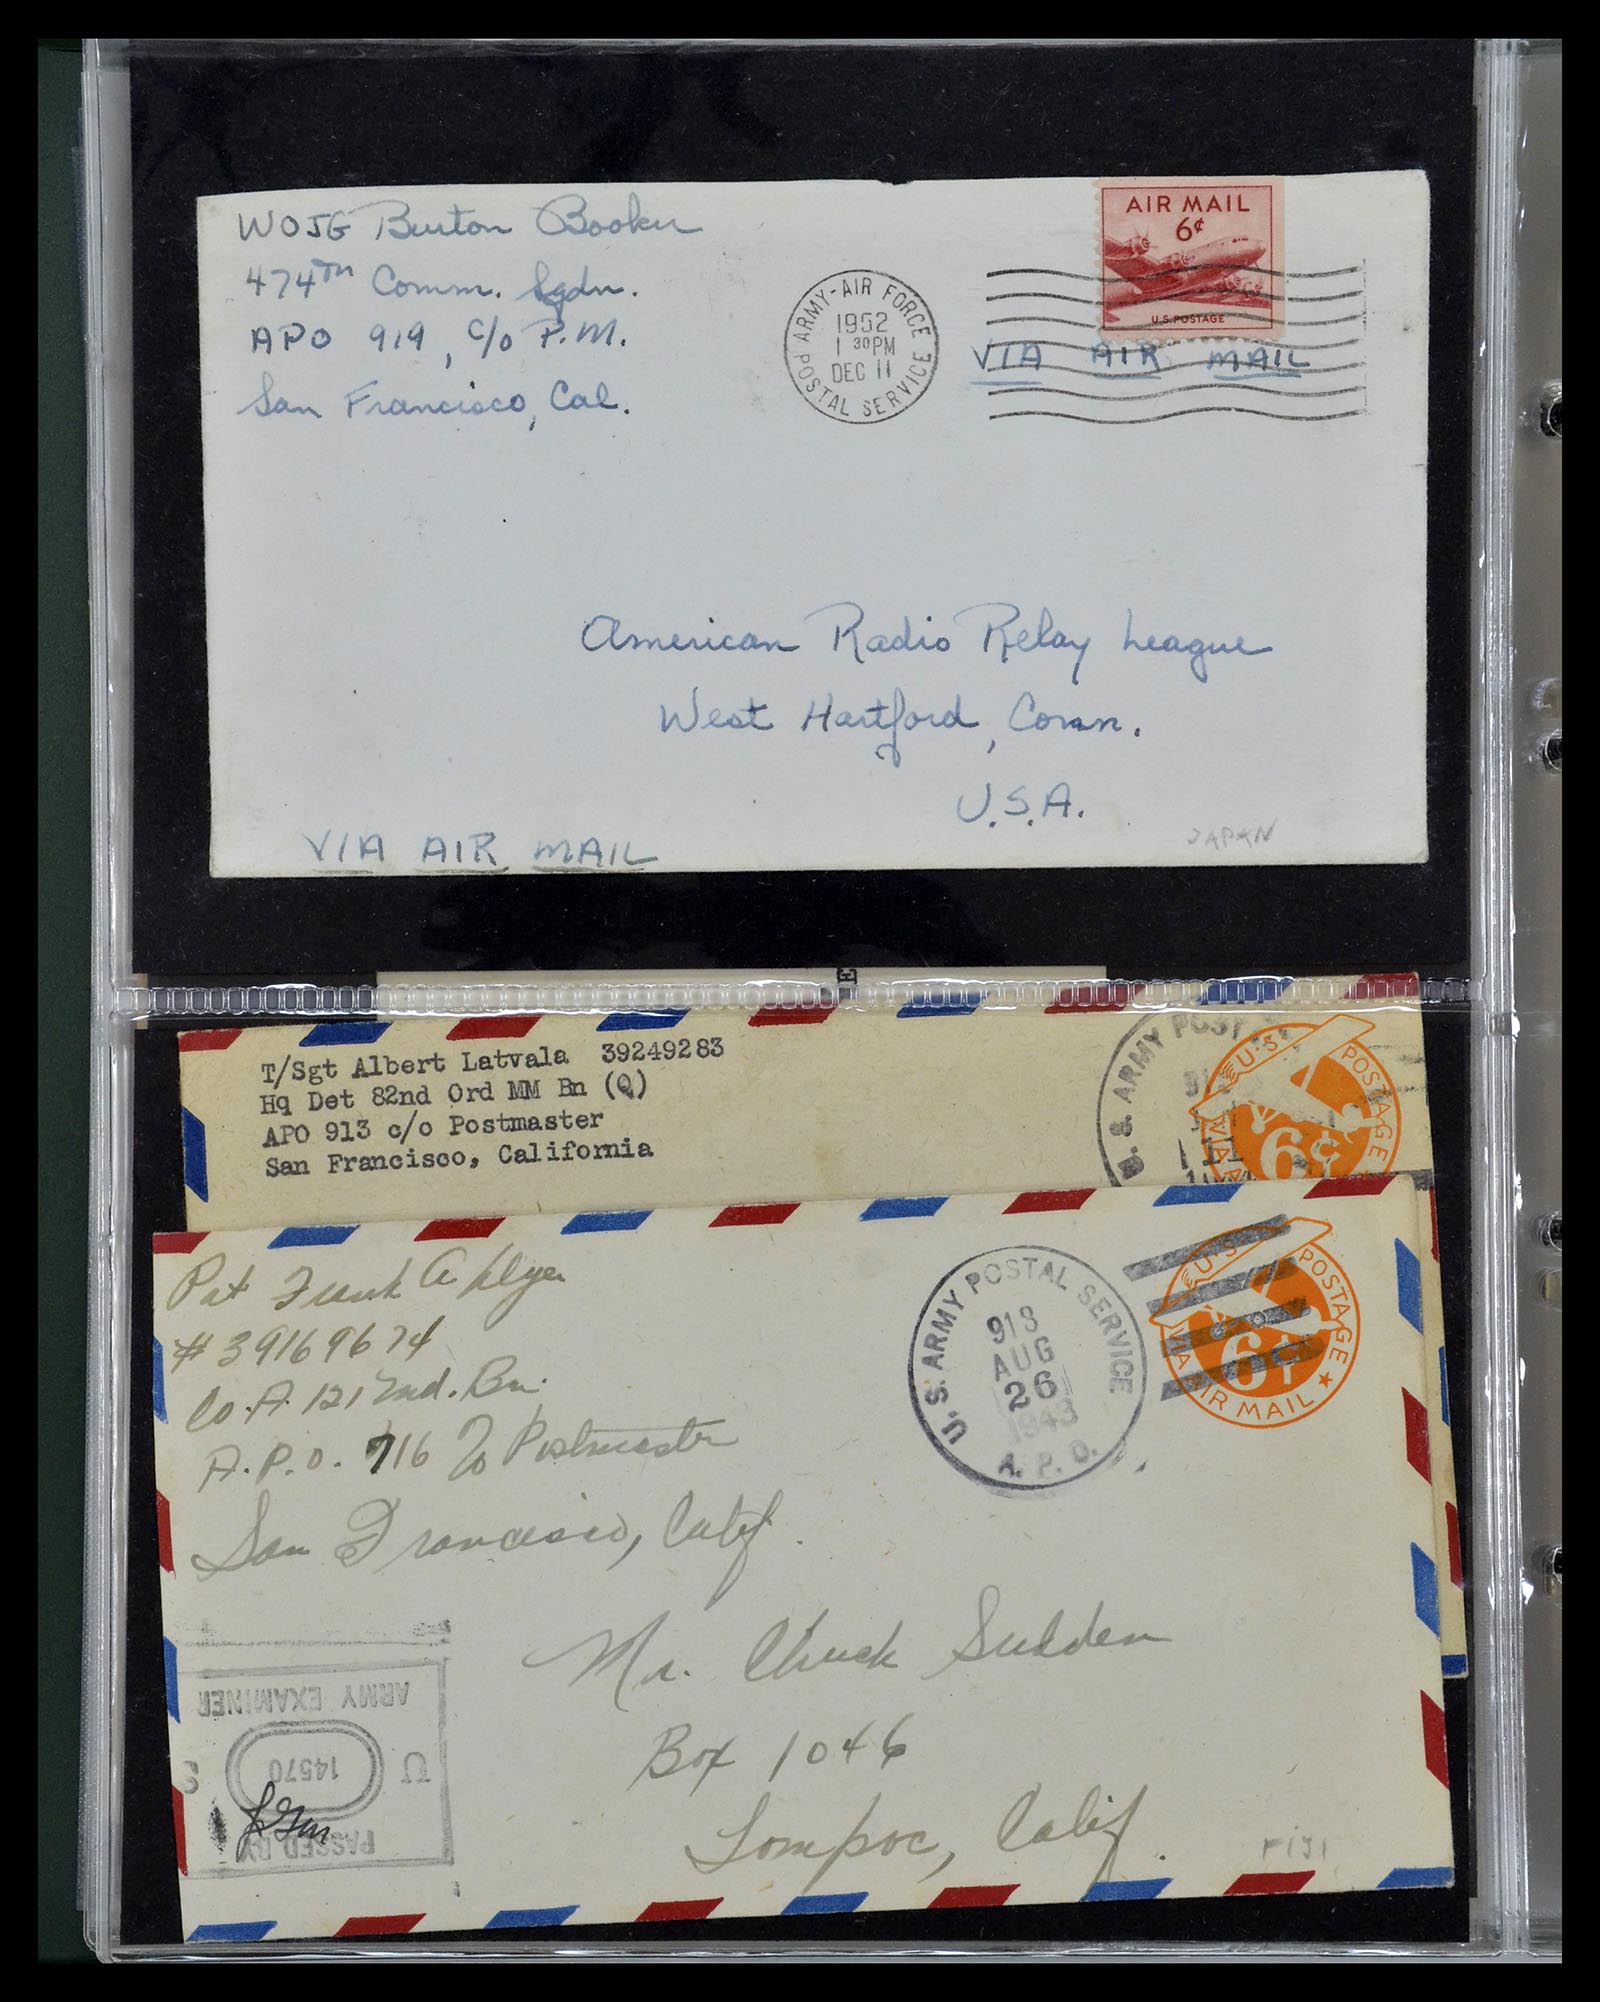 WOJG Burton Booker
474TH Comm. Sqdn.
APO 919, c/o P.M.
San Francisco, Cal.
ARMY-AIR FORCE
1952
1 30 PM
DEC 11
POSTAL SERVICE
AIR MAIL
6¢
U.S. POSTAGE
VIA AIR MAIL
American Radio Relay League
West Hartford, Conn.
U.S.A.
JAPAN
VIA AIR MAIL
T/Sgt Albert Latvala 39249283
Hq Det 82nd Ord MM Bn (Q)
APO 913 c/o Postmaster
San Francisco, California
U. S. ARMY POST
U.S. POSTAGE
6¢
Pvt Frank A
#39169674
Co. A. 121 Bn.
A.P.O. 716 c/o Postmaster
San Francisco, Calif.
U. S. ARMY POSTAL SERVICE
913
AUG
26
1943
A. P. O.
U.S. POSTAGE
6¢
VIA AIR MAIL
Mr. Chuck Sudden
Box 1046
Lompoc, Calif.
FIJI
PASSED BY
U S
14570
ARMY EXAMINER